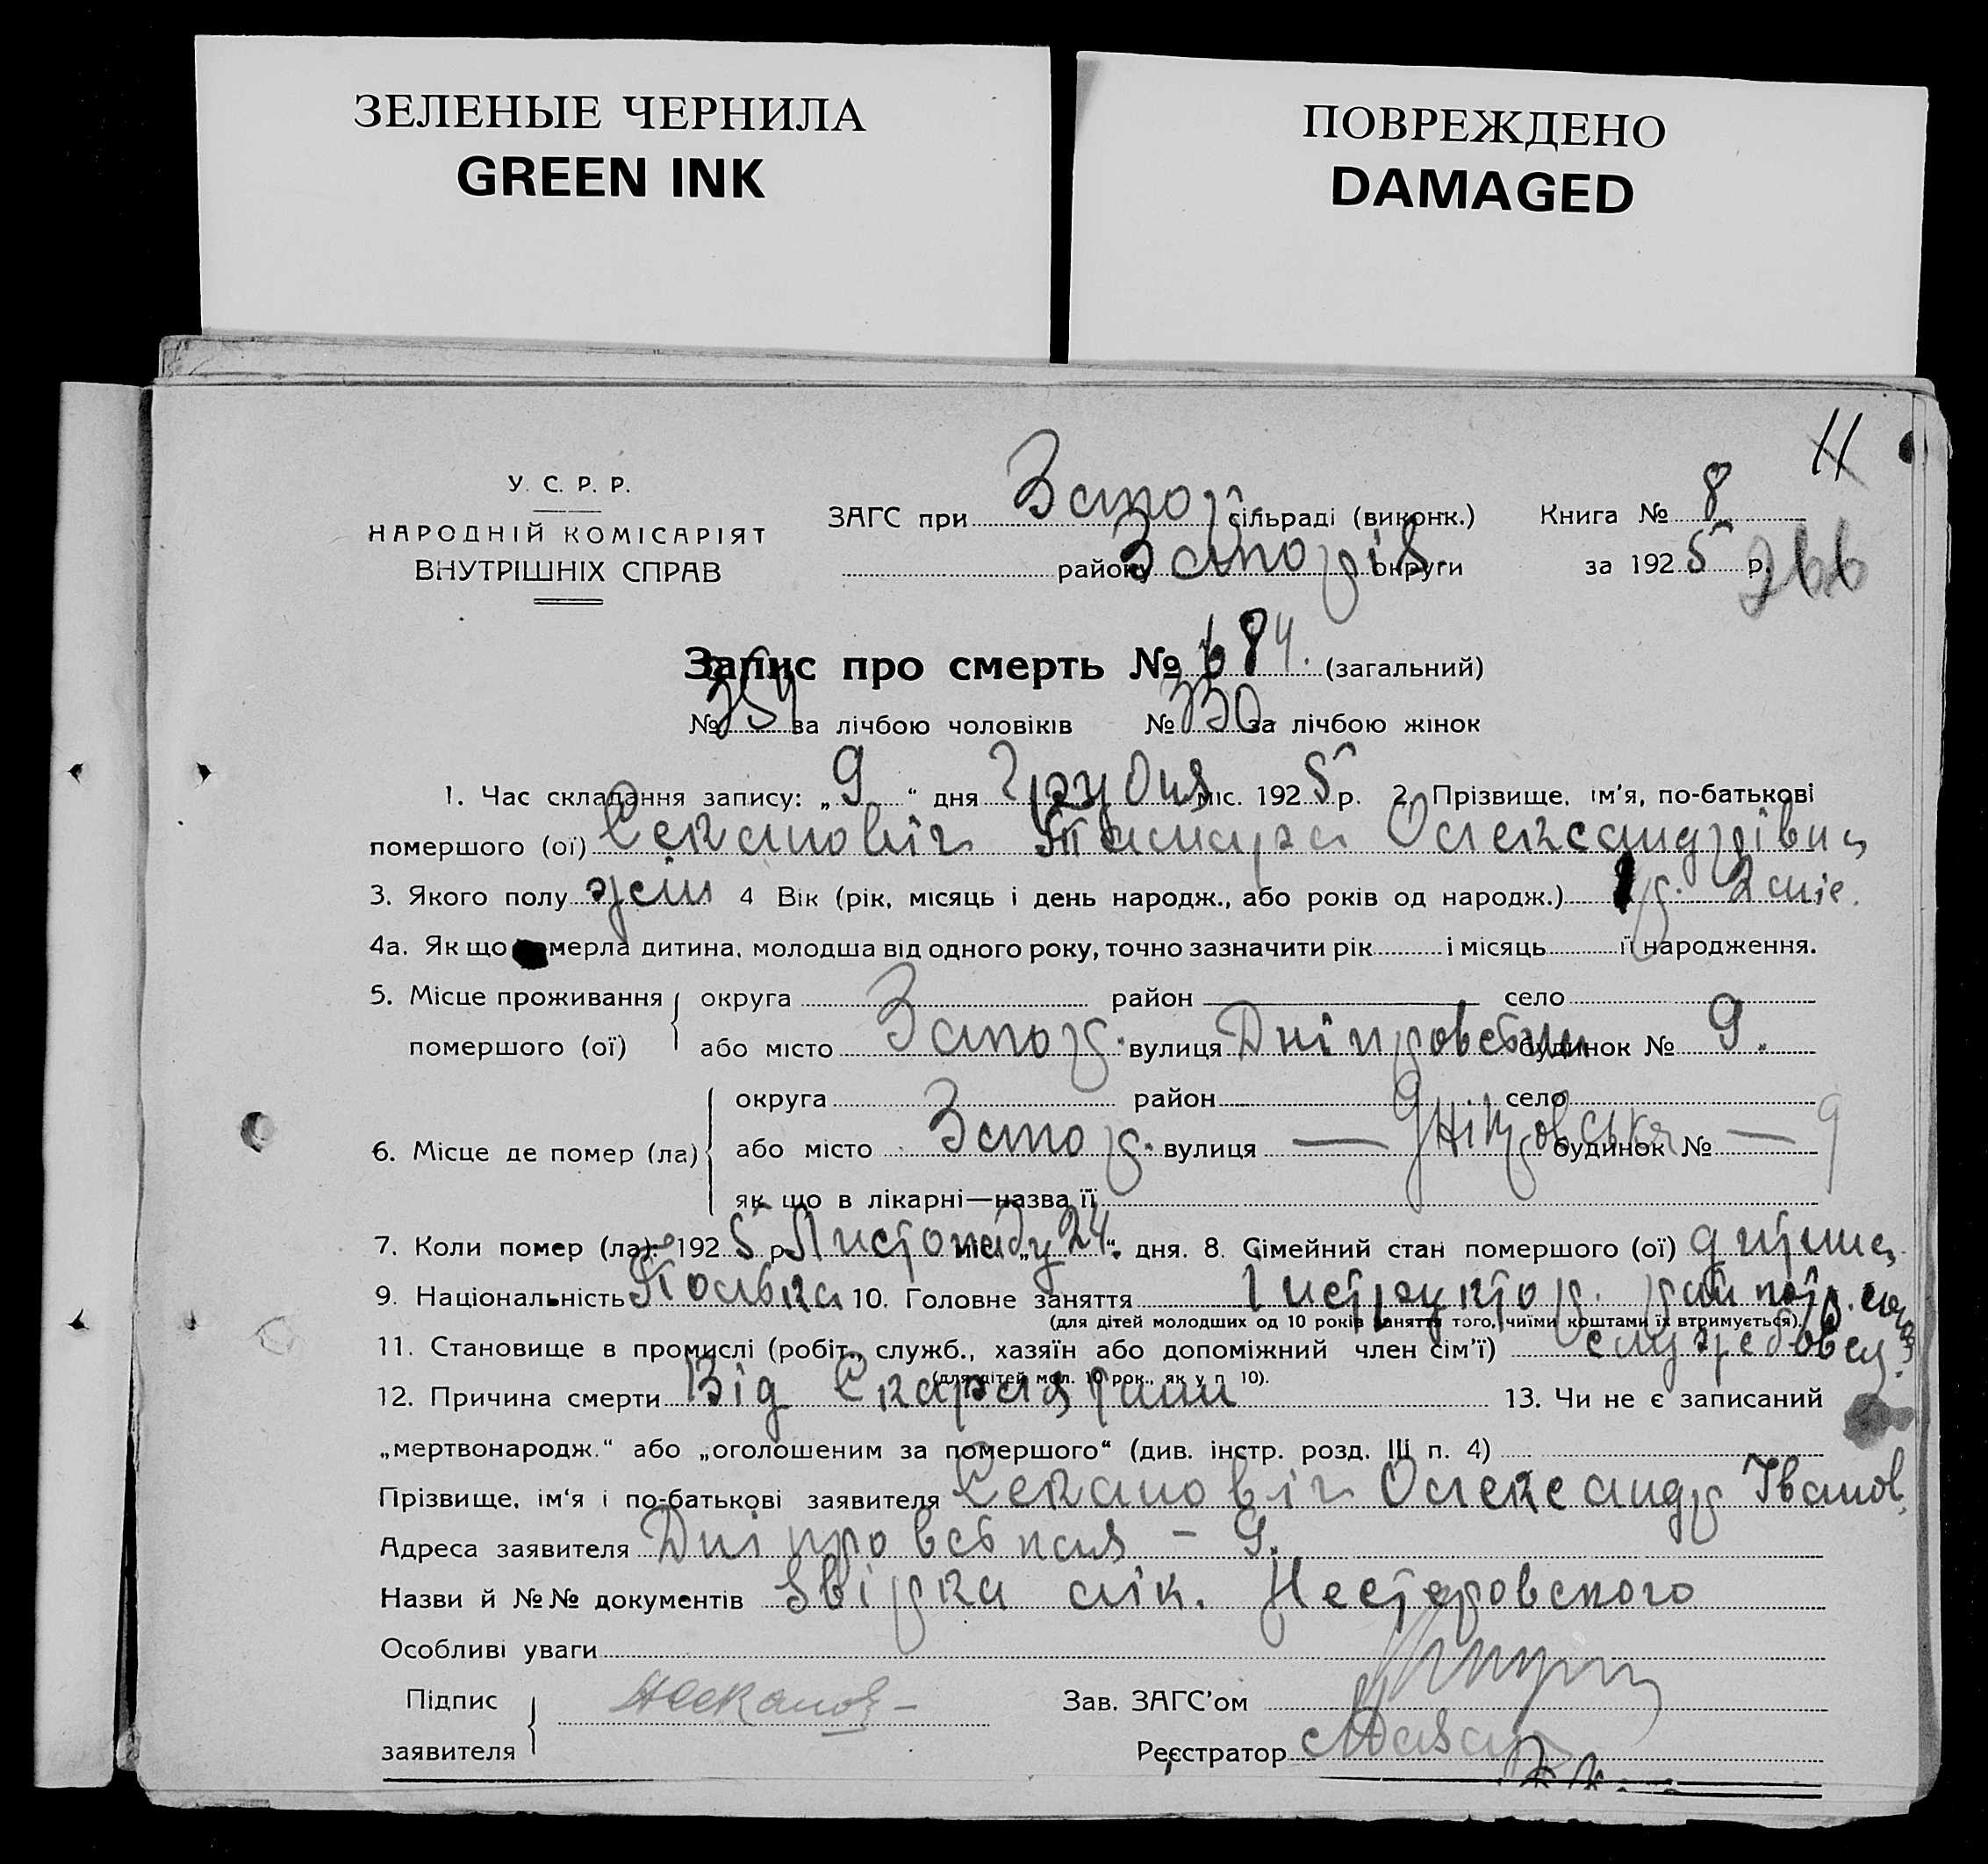 ЗЕЛЕНЫЕ ЧЕРНИЛА
GREEN INK
ПОВРЕЖДЕНО
DAMAGED
11
У. С. Р. Р.
НАРОДНІЙ КОМІСАРІЯТ
ВНУТРІШНІХ СПРАВ
ЗАГС при Запоріз сільраді (виконк.)
району Запоріз округи
Книга № 8
за 1925 р.
266
Запис про смерть № 684. (загальний)
№ 354 за лічбою чоловіків № 330 за лічбою жінок
1. Час складання запису: „9“ дня Грудня міс. 1925 р. 2. Прізвище, ім'я, по-батькові
помершого (ої) Секановіч Тамара Олександрівна
3. Якого полу жін 4 Вік (рік, місяць і день народж., або років од народж.) р. 2 міс.
4а. Як що померла дитина, молодша від одного року, точно зазначити рік і місяць її народження.
5. Місце проживання округа район село
помершого (ої) або місто Запор. вулиця Дніпровська будинок № 9.
округа район село
6. Місце де помер (ла) або місто Запор. вулиця — Дніпровська будинок № — 9
як що в лікарні—назва її
7. Коли помер (ла): 1925 р. Листопаду міс. „24“ дня. 8. Сімейний стан помершого (ої) дитина
9. Національність Полька 10. Головне заняття Інструктор.
(для дітей молодших од 10 років заняття того, чиїми коштами їх втримується).
11. Становище в промислі (робіт., служб., хазяїн або допоміжний член сім'ї) служебовец
(для дітей мол. 10 рок., як у п 10).
12. Причина смерти Від Скарлятини 13. Чи не є записаний
„мертвонародж.“ або „оголошеним за помершого“ (див. інстр. розд. III п. 4)
Прізвище, ім'я і по-батькові заявителя Секановіч Олександр Іванов.
Адреса заявителя Дніпровська – 9.
Назви й №№ документів Звірка лік. Нестеровского
Особливі уваги
Підпис
заявителя
Зав. ЗАГС'ом
Реєстратор